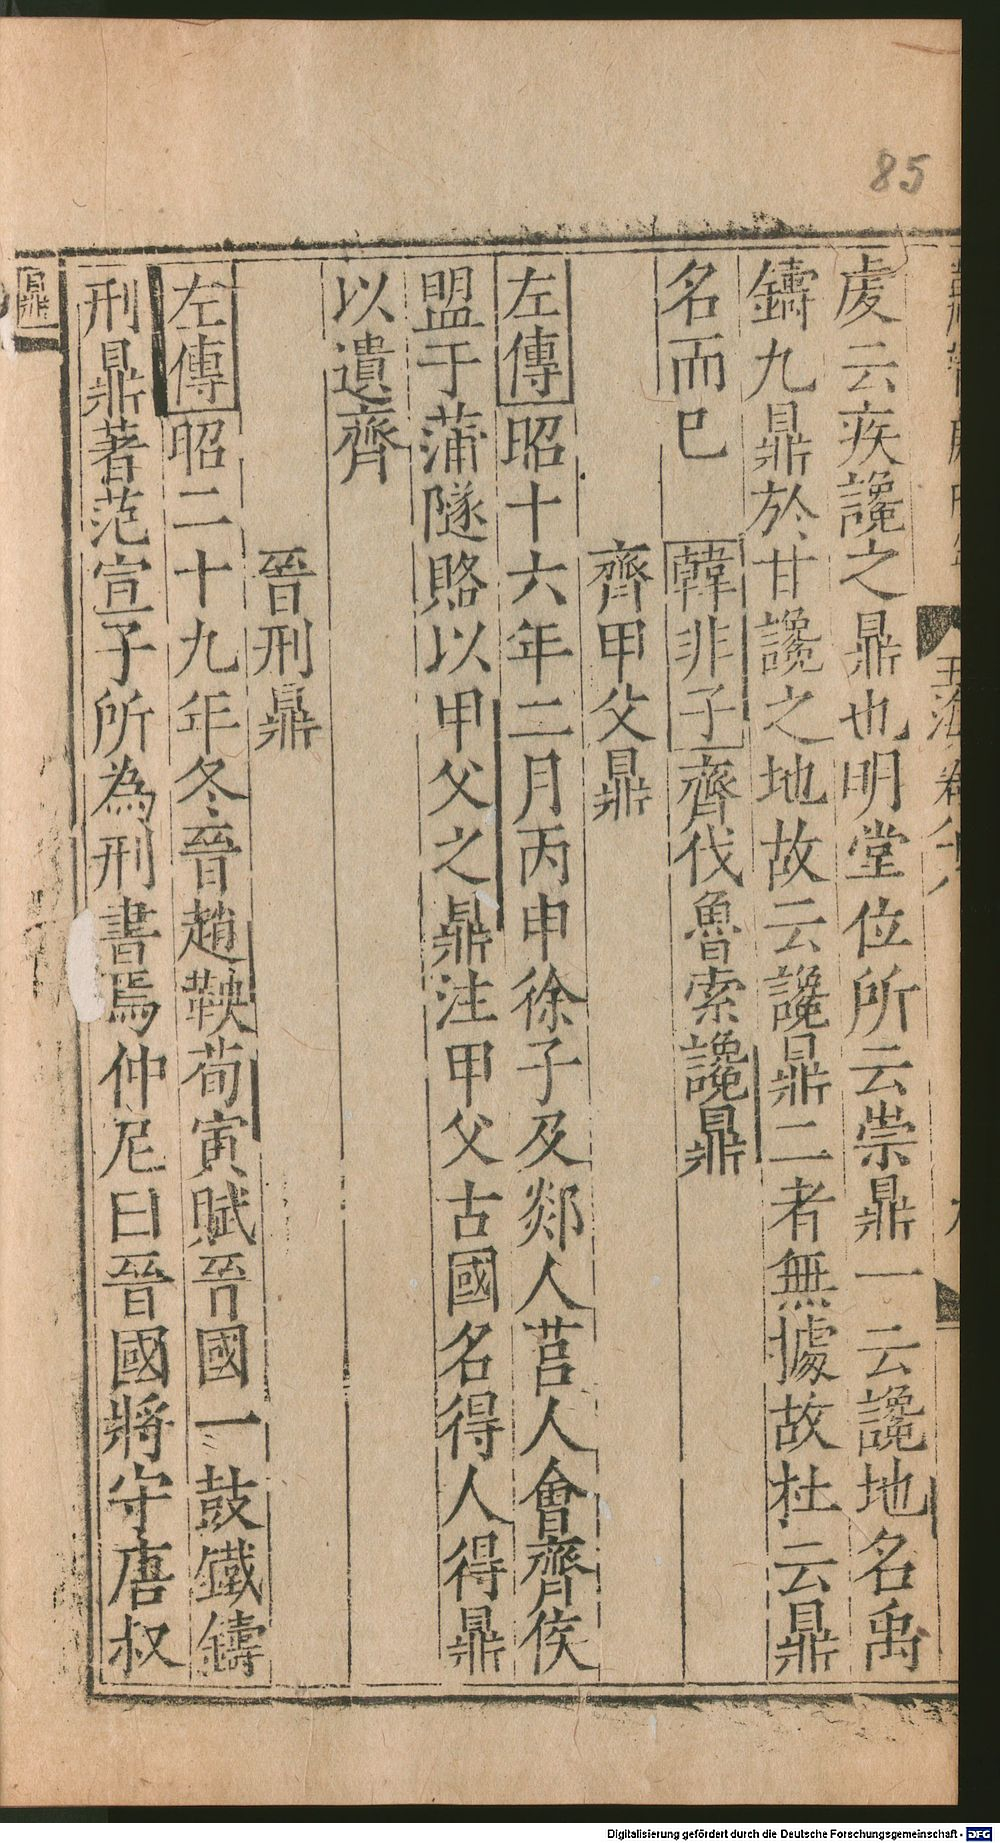 85
虔云疾讒之鼎也明堂位所云崇鼎一云讒地名禹
鑄九鼎於甘讒之地故云讒鼎二者無據故杜云鼎
名而已 韓非子齊伐魯索讒鼎
齊甲父鼎
左傳昭十六年二月丙申徐子及郯人莒人會齊侯
盟于蒲隧賂以甲父之鼎注甲父古國名得人得鼎
以遺齊
晉刑鼎
左傳昭二十九年冬晉趙鞅荀寅賦晉國一鼓鐵鑄
刑鼎著范宣子所為刑書焉仲尼曰晉國將守唐叔
鼎
Digitalisierung gefördert durch die Deutsche Forschungsgemeinschaft - DFG